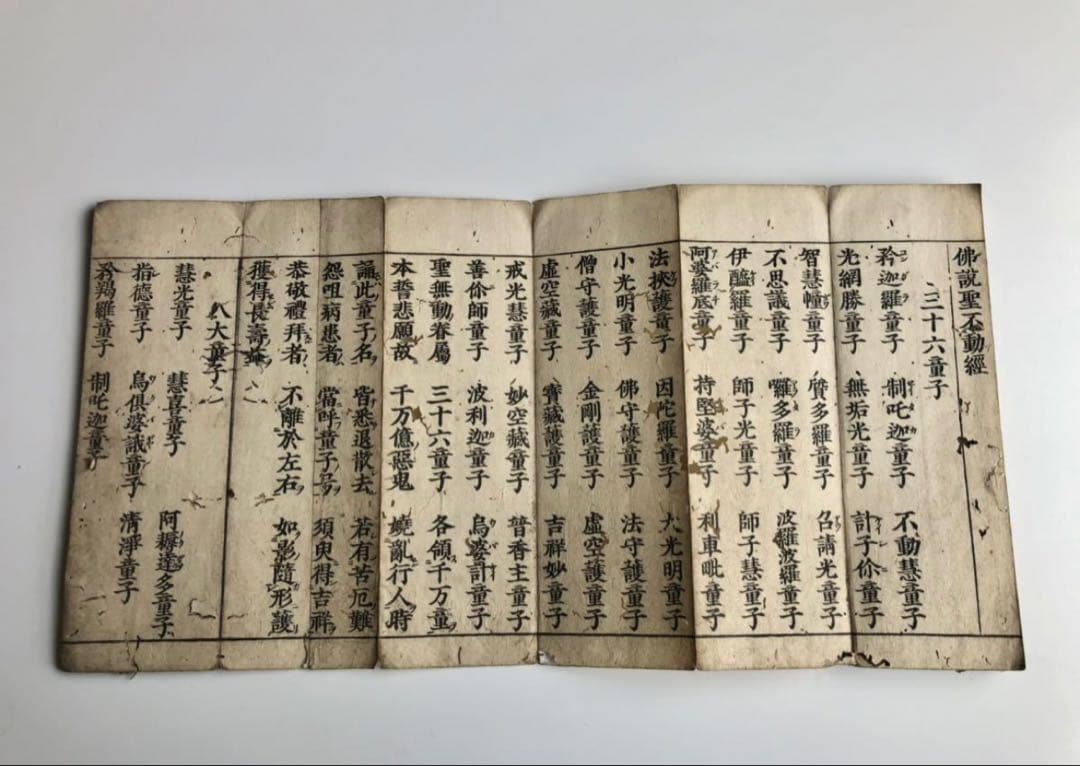 佛說聖不動經
三十六童子
矜迦羅童子 制吒迦童子 不動慧童子
光網勝童子 無垢光童子 計子伱童子
智慧幢童子 質多羅童子 召請光童子
不思議童子 囉多羅童子 波羅波羅童子
伊醯羅童子 師子光童子 師子慧童子
阿婆羅底童子 持堅婆童子 利車毗童子
法挾護童子 因陀羅童子 大光明童子
小光明童子 佛守護童子 法守護童子
僧守護童子 金剛護童子 虛空護童子
虛空藏童子 寶藏護童子 吉祥妙童子
戒光慧童子 妙空藏童子 普香主童子
善伱師童子 波利迦童子 烏婆計童子
聖無動眷屬 三十六童子 各領千万童
本誓悲願故 千万億惡鬼 嬈亂行人時
誦此童子名 皆悉退散去 若有苦厄難
怨咀病患者 當呼童子号 須臾得吉祥
恭敬禮拜者 不離於左右 如影隨形護
獲得長壽益
八大童子
慧光童子 慧喜童子 阿耨達多童子
指德童子 烏俱婆誐童子 清淨童子
矜羯羅童子 制吒迦童子